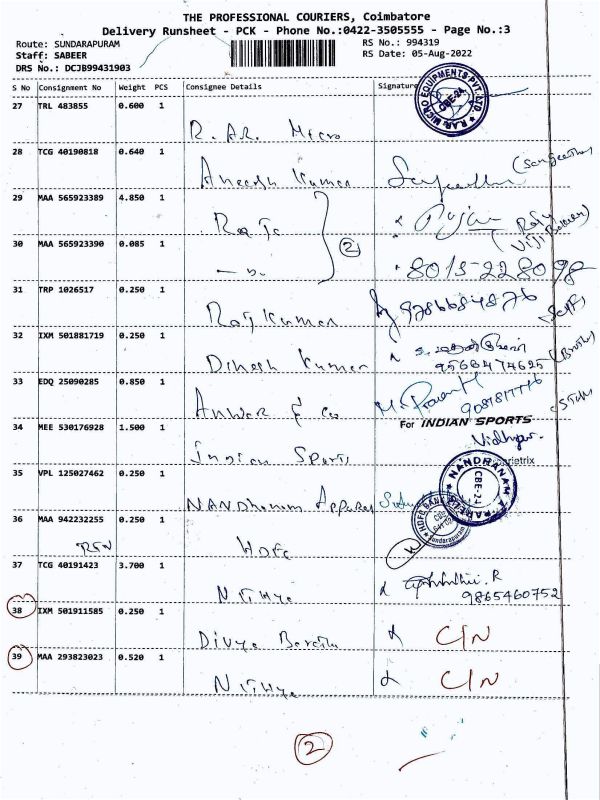 THE PROFESSIONAL COURIERS, Coimbatore
Delivery Runsheet - PCK - Phone No.:0422-3505555 - Page No.:3
Route: SUNDARAPURAM
RS No.: 994319
Staff: SABEER
RS Date: 05-Aug-2022
DRS No.: DCJB99431903
S No Consignment No Weight PCS Consignee Details Signature
27 TRL 483855 0.600 1 R. AR. Micro
R.AR. MICRO EQUIPMENTS PVT. LTD. CBE-24
28 TCG 40190818 0.640 1 Aneesh Kumar
29 MAA 565923389 4.850 1 Raja
2
30 MAA 565923390 0.085 1
8015-228098
31 TRP 1026517 0.250 1 Raj Kumar 9786684876
32 IXM 501881719 0.250 1 Dinesh Kumar
9566474625
33 EDQ 25090285 0.850 1 Anwar & Co
For INDIAN SPORTS
34 MEE 530176928 1.500 1 Indian Sports
35 VPL 125027462 0.250 1 NANDhanam Apparas
NANDHANAM CBE-24
36 MAA 942232255 0.250 1 Hdfc
HDFC BANK Sundarapuram
37 TCG 40191423 3.700 1 Nithya
9865460752
38 IXM 501911585 0.250 1 Divya C/N
39 MAA 293823023 0.520 1 Nithya C/N
2